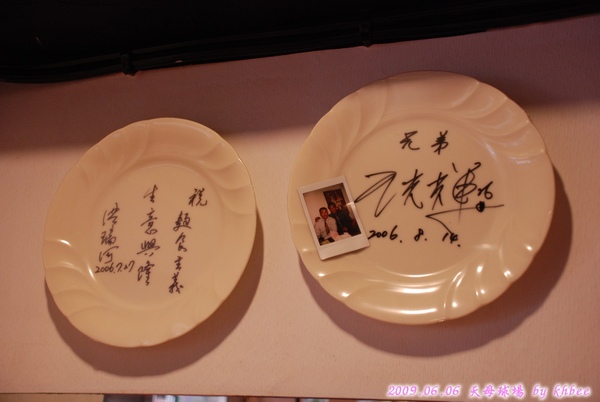 祝
生意興隆
洪瑞河
2006.7.27
兄弟
王光輝
2006.8.14.
2009.06.06 天母球場 by khbee